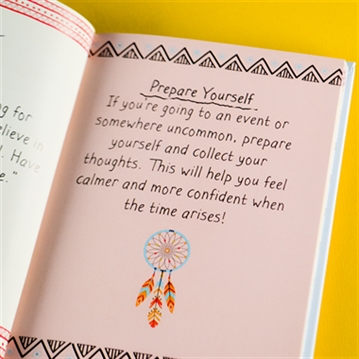 ng for
elieve in
l. Have
e."
Prepare Yourself
If you're going to an event or
somewhere uncommon, prepare
yourself and collect your
thoughts. This will help you feel
calmer and more confident when
the time arises!